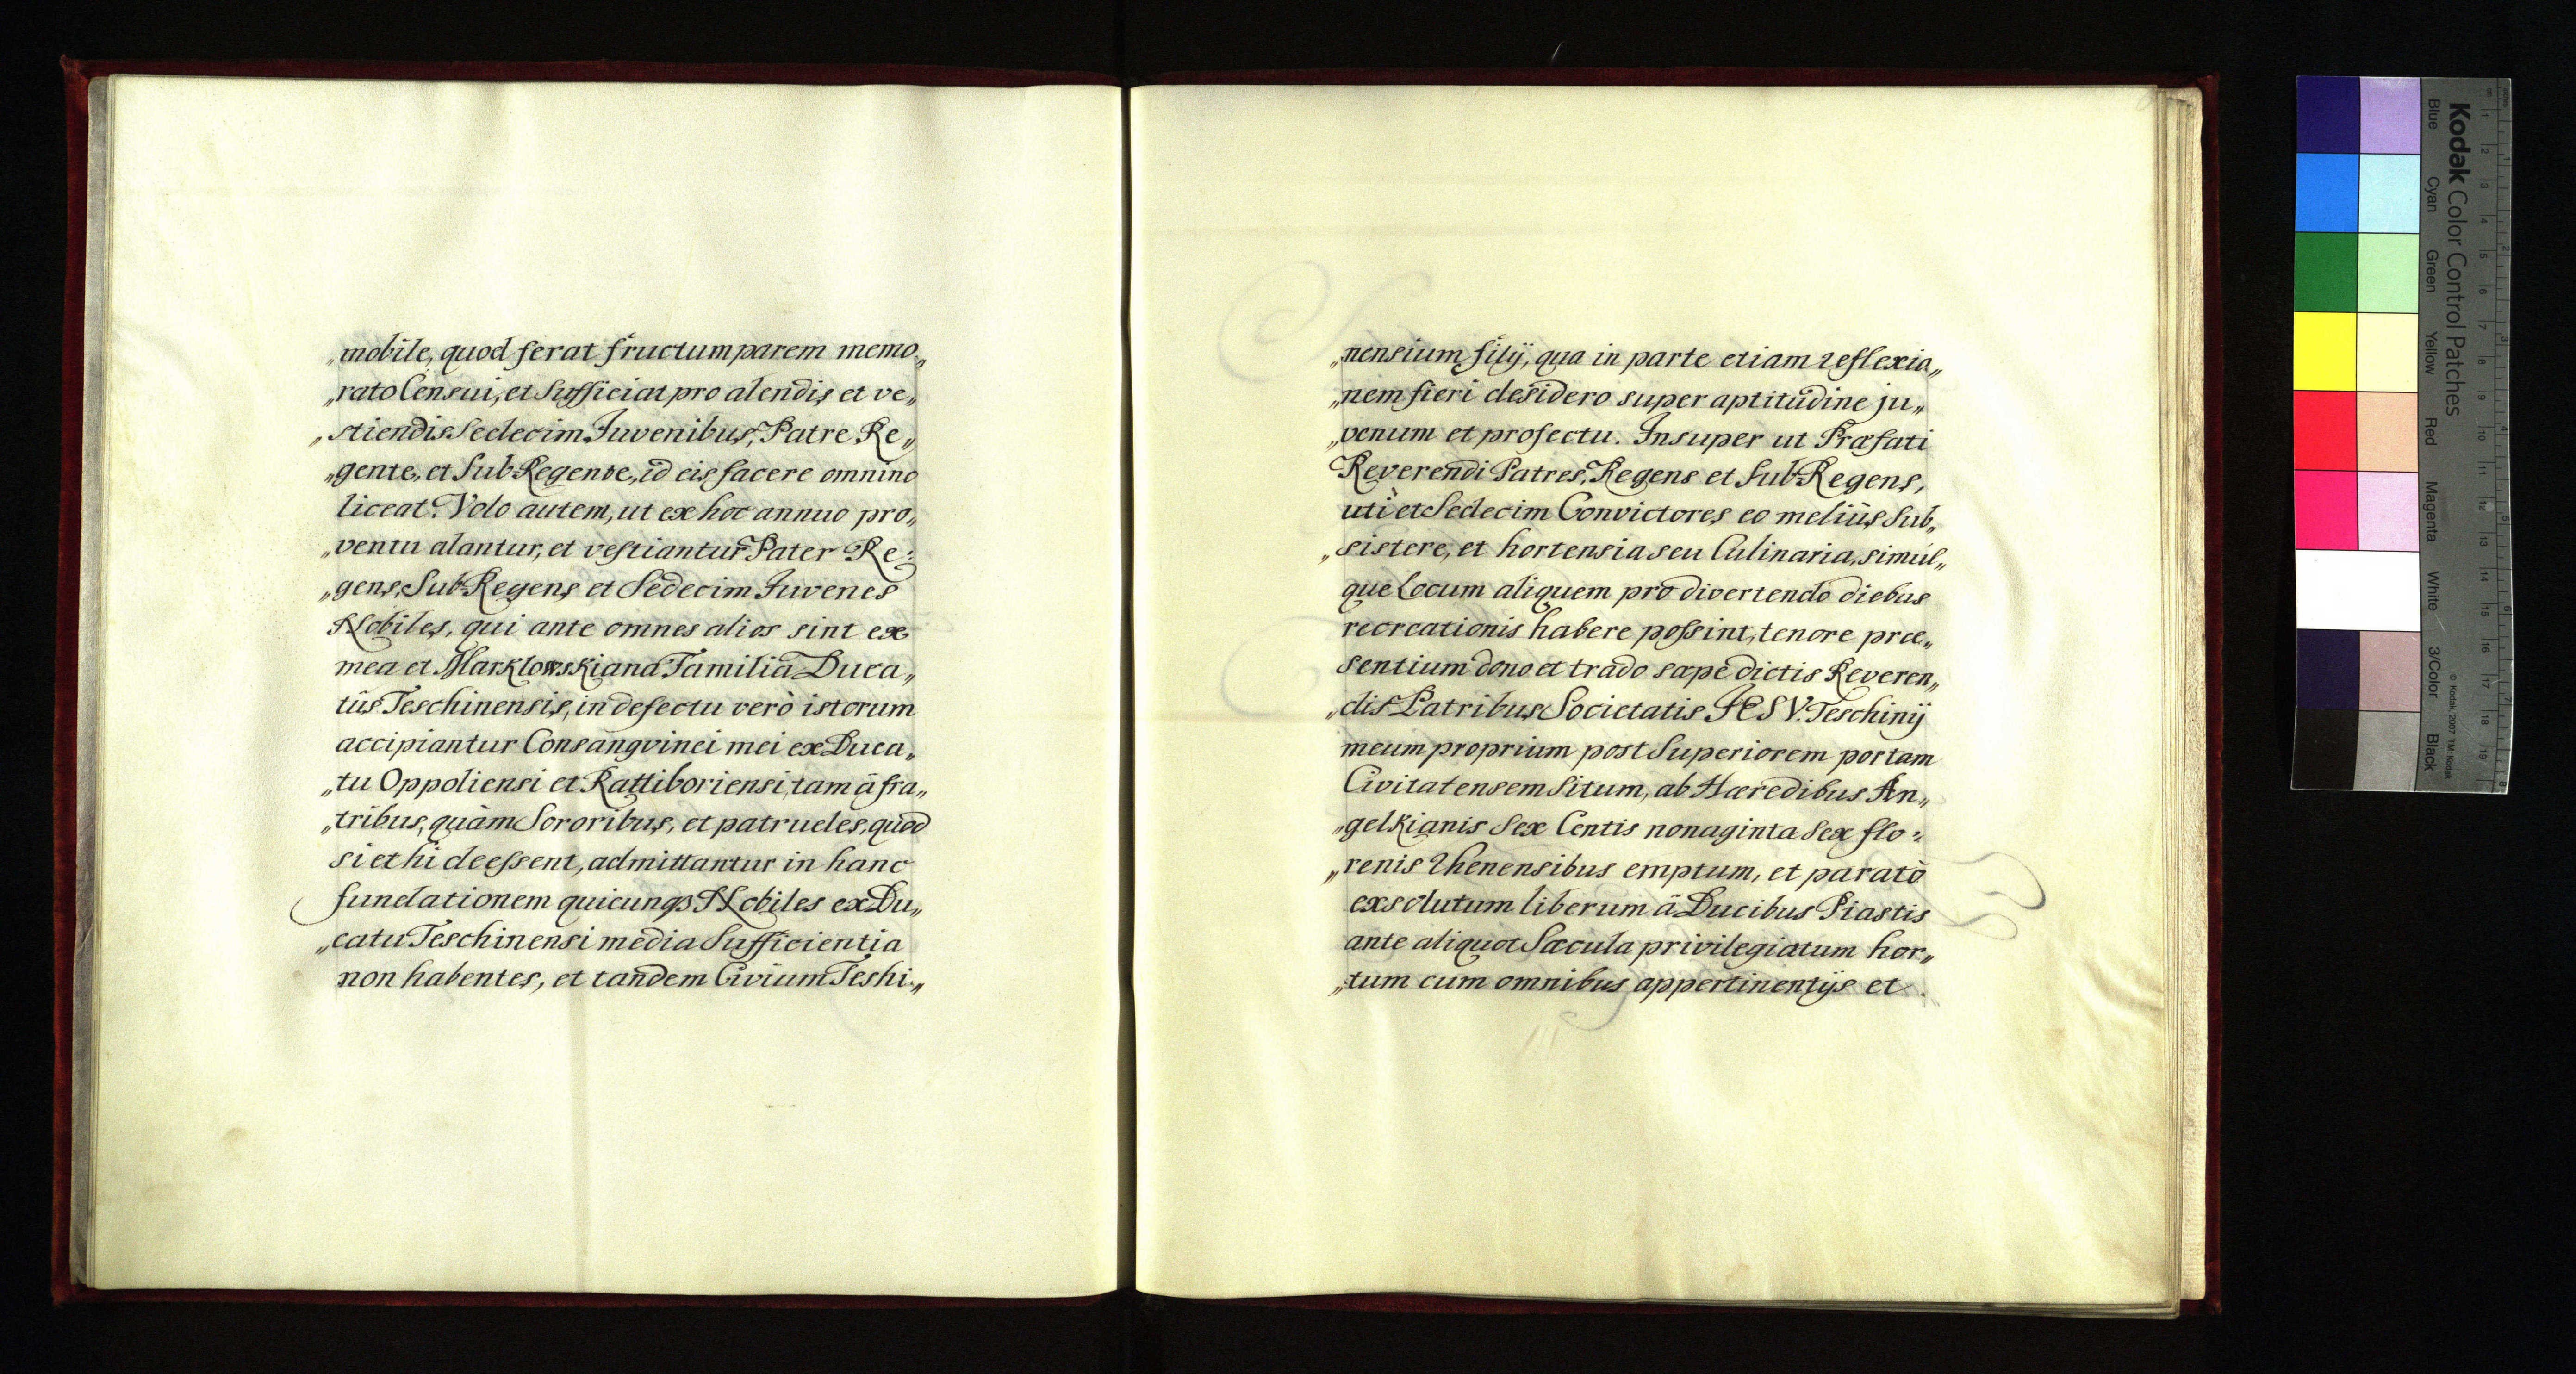 „mobile, quod ferat fructum parem memo„
„rato Censui, et Sufficiat pro alendis et ve„
„stiendis Sedecim Juvenibus, Patre Re„
„gente, et Sub-Regente, id eis facere omnino
liceat. Volo autem, ut ex hoc annuo pro„
„ventu alantur, et vestiantur Pater Re:
„gens, Sub-Regens et Sedecim Juvenes
Nobiles, qui ante omnes alios sint ex
mea et Marklowskiana Familia Duca„
tûs Teschinensis, in defectu verò istorum
accipiantur Consangvinei mei ex Duca„
„tu Oppoliensi et Rattiboriensi, tam â fra„
„tribus, quàm Sororibus, et patrueles, quod
si et hi deessent, admittantur in hanc
fundationem quicunqз Nobiles ex Du„
„catu Teschinensi media Sufficientia
non habentes, et tandem Civium Teshi„
„nensium filÿ, qua in parte etiam reflexio„
„nem fieri desidero super aptitudine ju„
„venum et profectu. Insuper ut Præfati
Reverendi Patres, Regens et Sub-Regens,
uti et Sedecim Convictores eo meliûs Sub„
„sistere, et hortensia seu Culinaria, simúl„
que Locum aliquem pro divertendo diebus
recreationis habere possint, tenore præ„
sentium dono et trado sæpe dictis Reveren„
„dis Patribus Societatis JESV. Teschinÿ
meum proprium post Superiorem portam
Civitatensem Situm, ab Hæredibus An„
„gelkianis Sex Centis nonaginta Sex flo:
„renis Rhenensibus emptum, et paratò
exsolutum liberum â Ducibus Piastis
ante aliquot Sæcula privilegiatum hor„
„tum cum omnibus appertinentÿs et
Kodak Color Control Patches
Blue Cyan Green Yellow Red Magenta White 3/Color Black
© Kodak, 2007 TM: Kodak